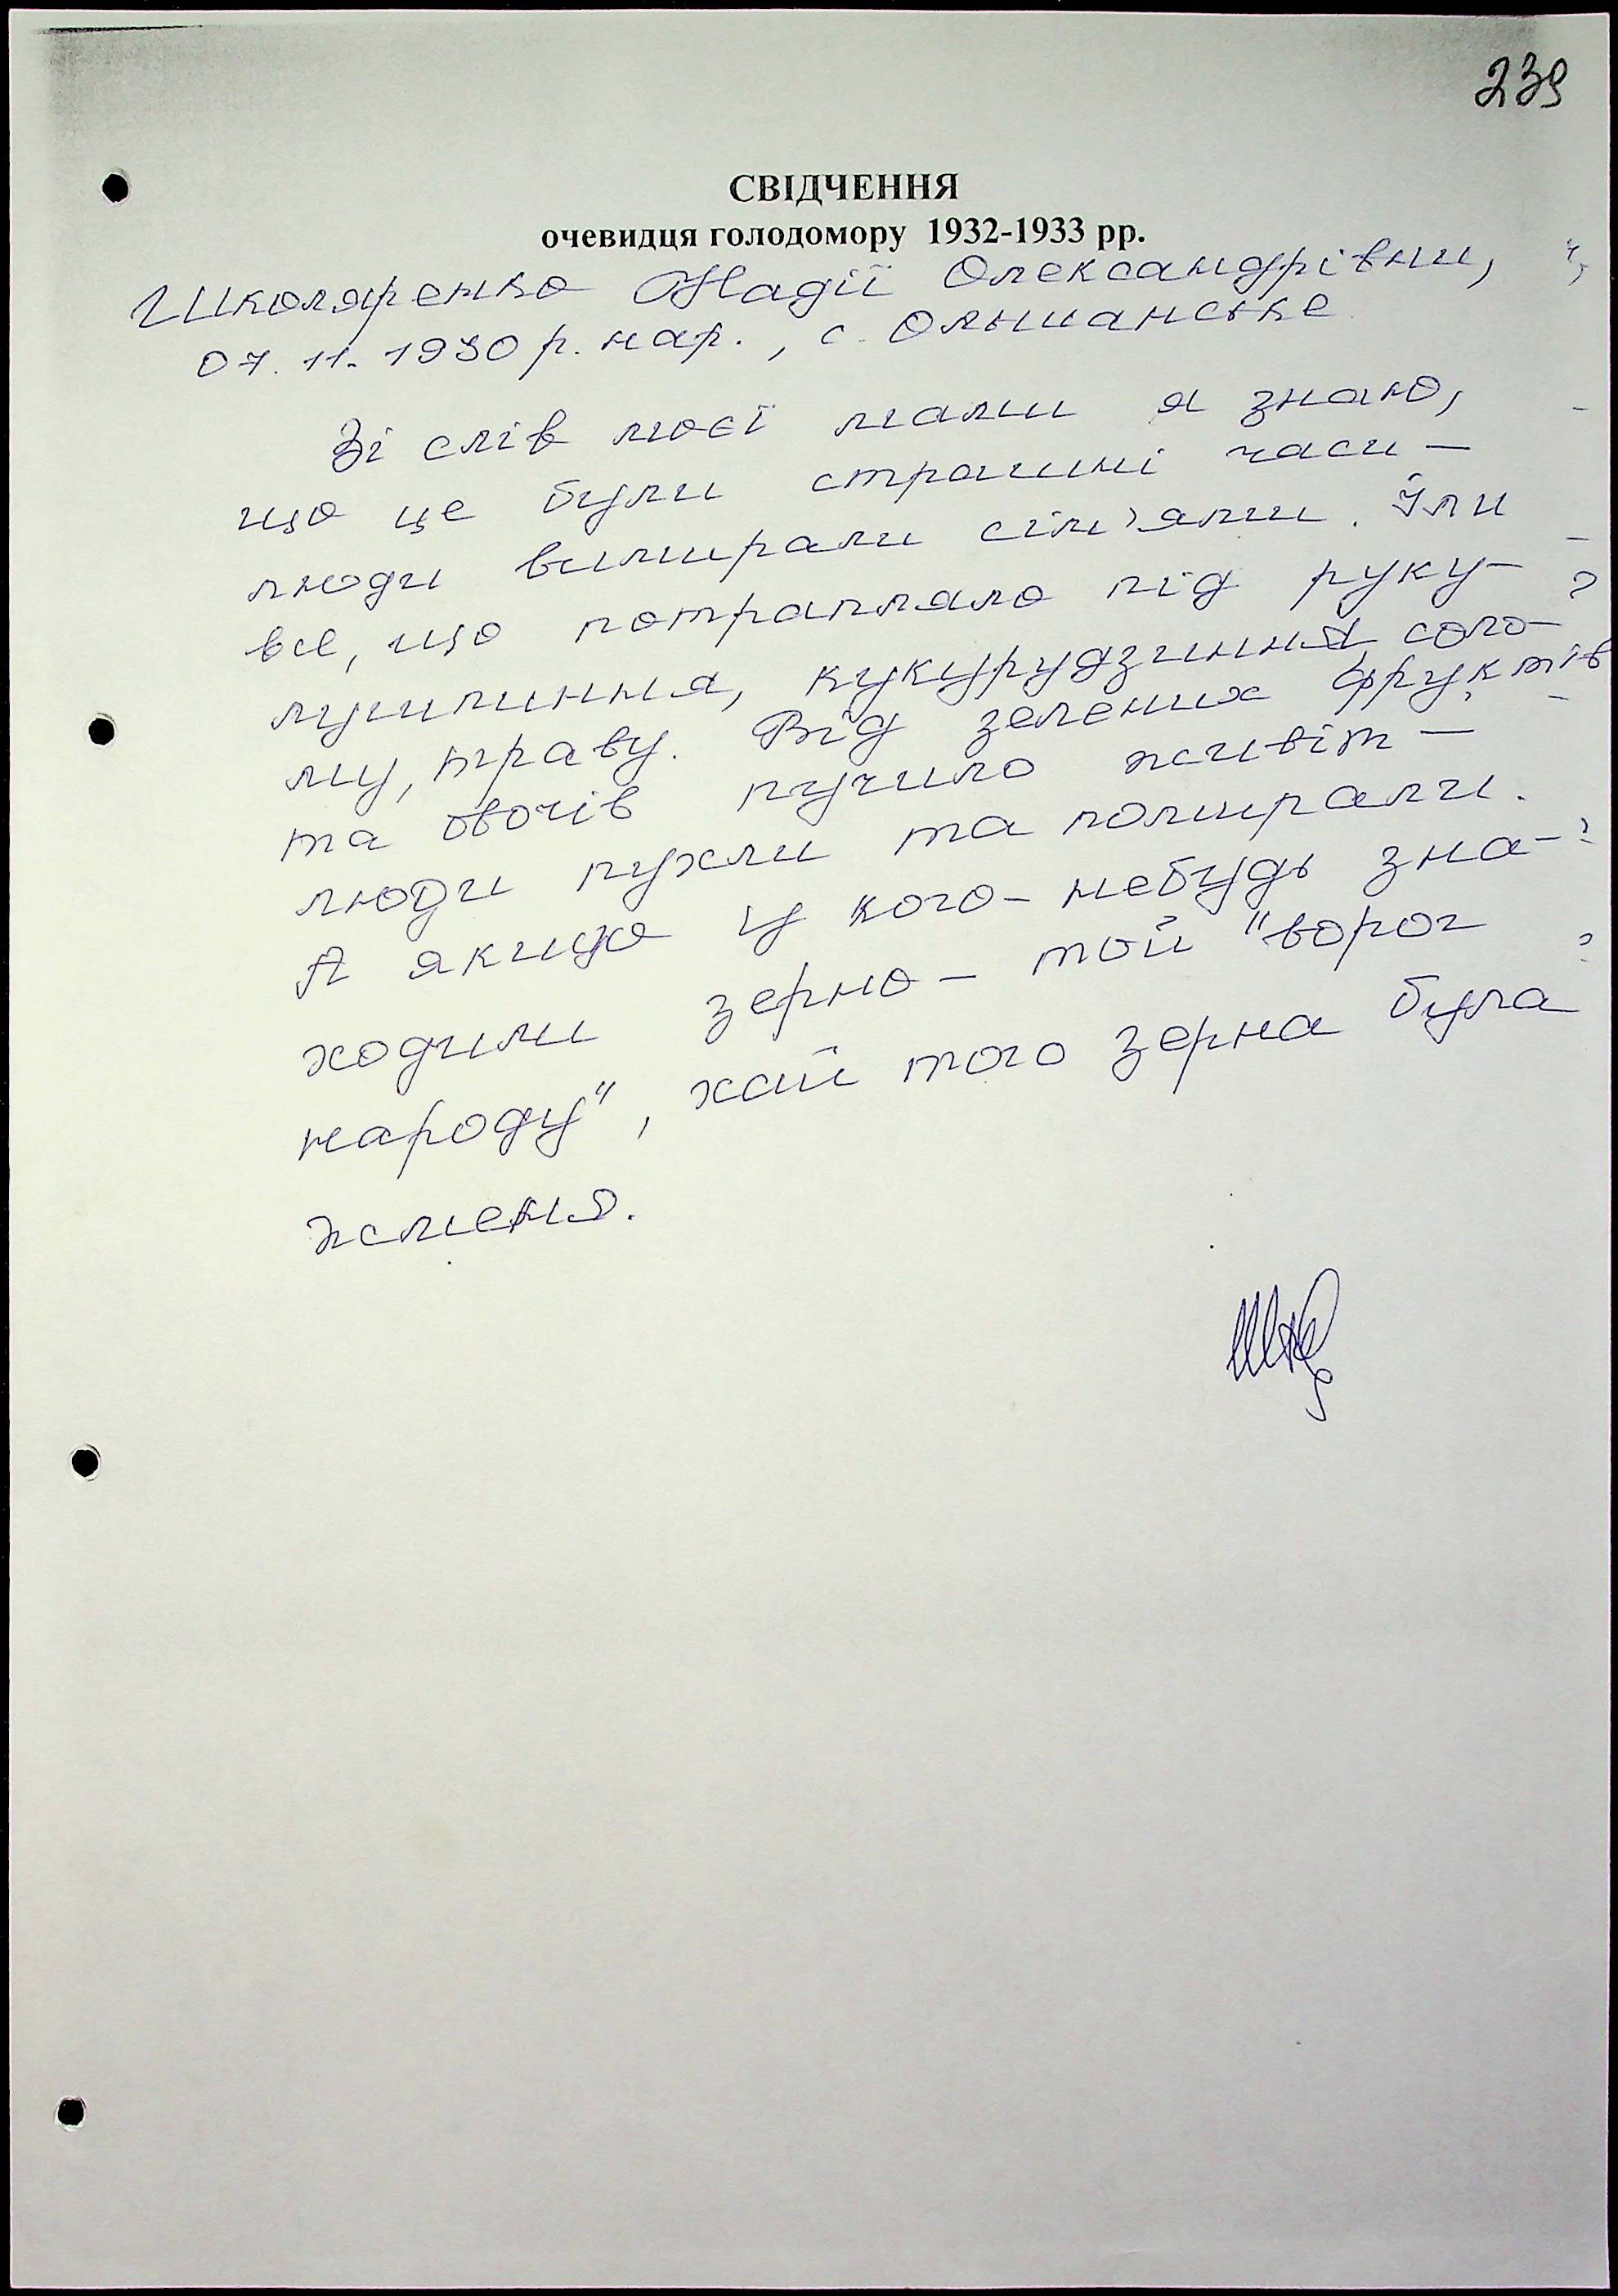 239
СВІДЧЕННЯ
очевидця голодомору 1932-1933 рр.
Школяренко Надії Олександрівни,
07.11.1930 р. нар., с. Ольшанське
Зі слів моєї мами я знаю,
що це були страшні часи –
люди вимирали сім'ями. Їли
все, що потрапляло під руку –
лушпиння, кукурудзиння, соло-
му, траву. Від зелених фруктів
та овочів пучило живіт –
люди пухли та помирали.
А якщо у кого-небудь зна-
ходили зерно – той "ворог
народу", хай того зерна була
жменя.